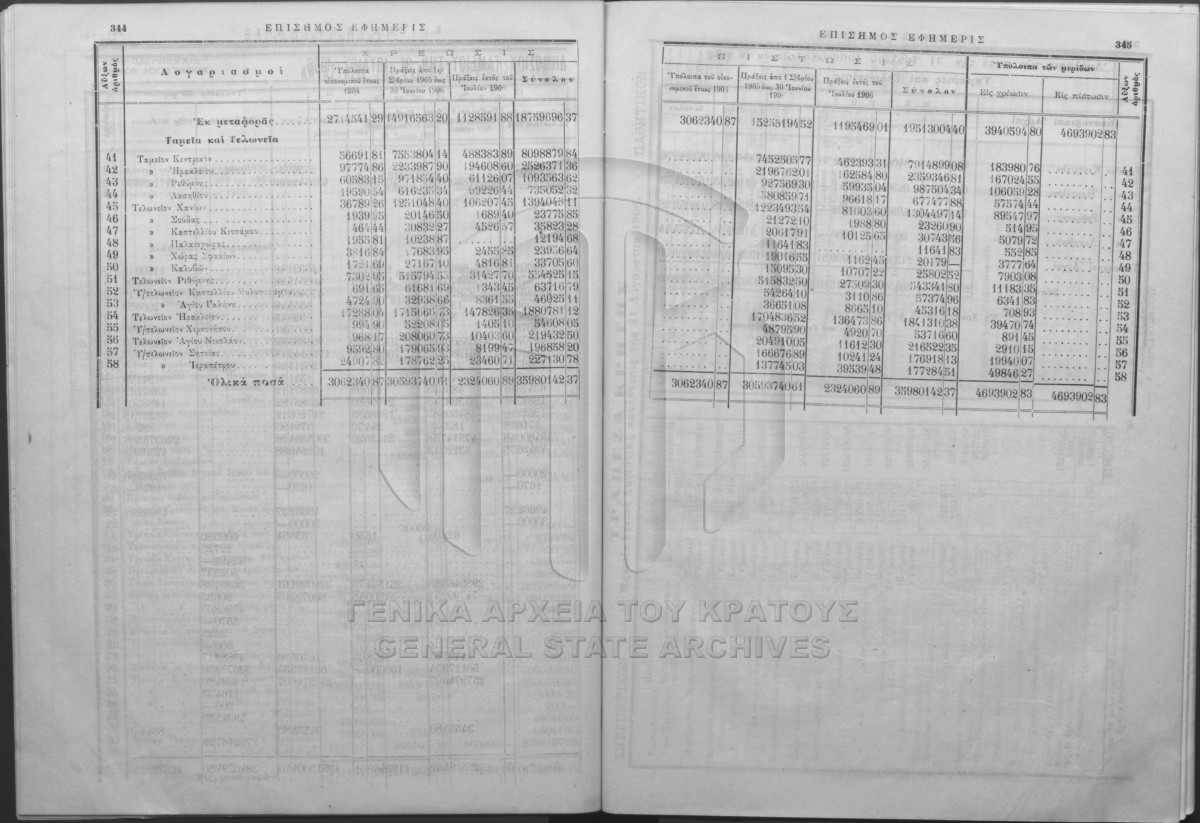 344 ΕΠΙΣΗΜΟΣ ΕΦΗΜΕΡΙΣ
Αὔξων ἀριθμός
Λογαριασμοὶ
ΧΡΕΩΣΙΣ
Ὑπόλοιπα οἰκονομικοῦ ἔτους 1904
Πράξεις ἀπὸ 1 7βρίου 1905 ἕως 30 Ἰουνίου 1906
Πράξεις ἐντὸς τοῦ Ἰουλίου 190
Σύνολον
Ἐκ μεταφορᾶς 2714541 29 14916563 20 1128591 88 18759696 37
Ταμεῖα καὶ Τελωνεῖα
41 Ταμεῖον Κεντρικὸν 56691 81 7553804 14 488383 89 8098879 84
42 » Ἡρακλείου 97774 86 2233987 90 194608 60 2526371 36
43 » Ρεθύμνης 60583 15 971854 40 61126 07 1093563 62
44 » Λασηθίου 19590 54 616235 34 99226 44 735052 32
45 Τελωνεῖον Χανίων 36789 26 1251048 40 106207 45 1394045 11
46 » Σούδας 1939 95 20146 50 1689 40 23775 85
47 » Καστελλίου Κισσάμου 464 44 30832 27 4526 57 35823 28
48 » Παλαιοχώρας 1955 81 10238 87 12194 68
49 » Χώρας Σφακίων 3816 84 17683 95 2455 85 23956 64
50 » Καλυβῶν 1721 69 27167 10 4816 81 33705 60
51 Τελωνεῖον Ρεθύμνης 7302 95 515794 50 31427 70 554525 15
52 Ὑ/τελωνεῖον Καστελλίου 691 65 61681 69 1343 45 63716 79
53 » Ἁγίου Γαλήνη 4724 90 32938 66 8361 55 46025 11
54 Τελωνεῖον Ἡρακλείου 17288 04 1715666 73 147826 35 1880781 12
55 Ὑ/τελωνεῖον Χερσονήσου 994 90 52208 05 1405 10 54608 05
56 Τελωνεῖον Ἁγίου Νικολάου 968 17 208060 73 10403 60 219432 50
57 Ὑ/τελωνεῖον Σητείας 9592 80 179065 93 8199 47 196858 20
58 » Ἱεραπέτρου 178762 25 23460 71 227130 78
Ὁλικὰ ποσὰ 3062340 87 30593740 61 2324060 89 35980142 37
ΕΠΙΣΗΜΟΣ ΕΦΗΜΕΡΙΣ 345
ΠΙΣΤΩΣΙΣ
Ὑπόλοιπα τοῦ οἰκονομικοῦ ἔτους 1904
Πράξεις ἀπὸ 1 Σ)βρίου 1905 ἕως 30 Ἰουνίου 190
Πράξεις ἐντὸς τοῦ Ἰουλίου 1906
Σύνολον
Ὑπόλοιπα τῶν μερίδων
Εἰς χρέωσιν
Εἰς πίστωσιν
Αὔξων ἀριθμός
3062340 87 15255194 52 1195469 01 19513004 40 3940594 80 4693902 83
7452505 77 462393 31 7914899 08 183980 76 41
2196762 01 162584 80 2359346 81 167024 55 42
927569 30 59935 04 987504 34 106059 28 43
580859 71 96618 17 677477 88 57574 44 44
1223493 54 81003 60 1304497 14 89547 97 45
21272 10 1988 80 23260 90 514 95 46
20617 91 10125 65 30743 56 5079 72 47
11641 83 11641 83 552 85 48
19016 55 1162 45 20179 — 3777 64 49
15095 30 10707 22 25802 52 7903 08 50
515832 50 27509 30 543341 80 11183 35 51
54264 10 3110 86 57374 96 6341 83 52
36651 08 8665 10 45316 18 708 93 53
1704836 52 136473 86 1841310 38 39470 74 54
48795 90 4920 70 53716 60 891 45 55
204910 05 11612 30 216522 35 2910 15 56
166676 89 10241 24 176918 13 19940 07 57
137745 03 39539 48 177284 51 49846 27 58
3062340 87 30593740 61 2324060 89 35980142 37 4693902 83 4693902 83
ΓΕΝΙΚΑ ΑΡΧΕΙΑ ΤΟΥ ΚΡΑΤΟΥΣ
GENERAL STATE ARCHIVES